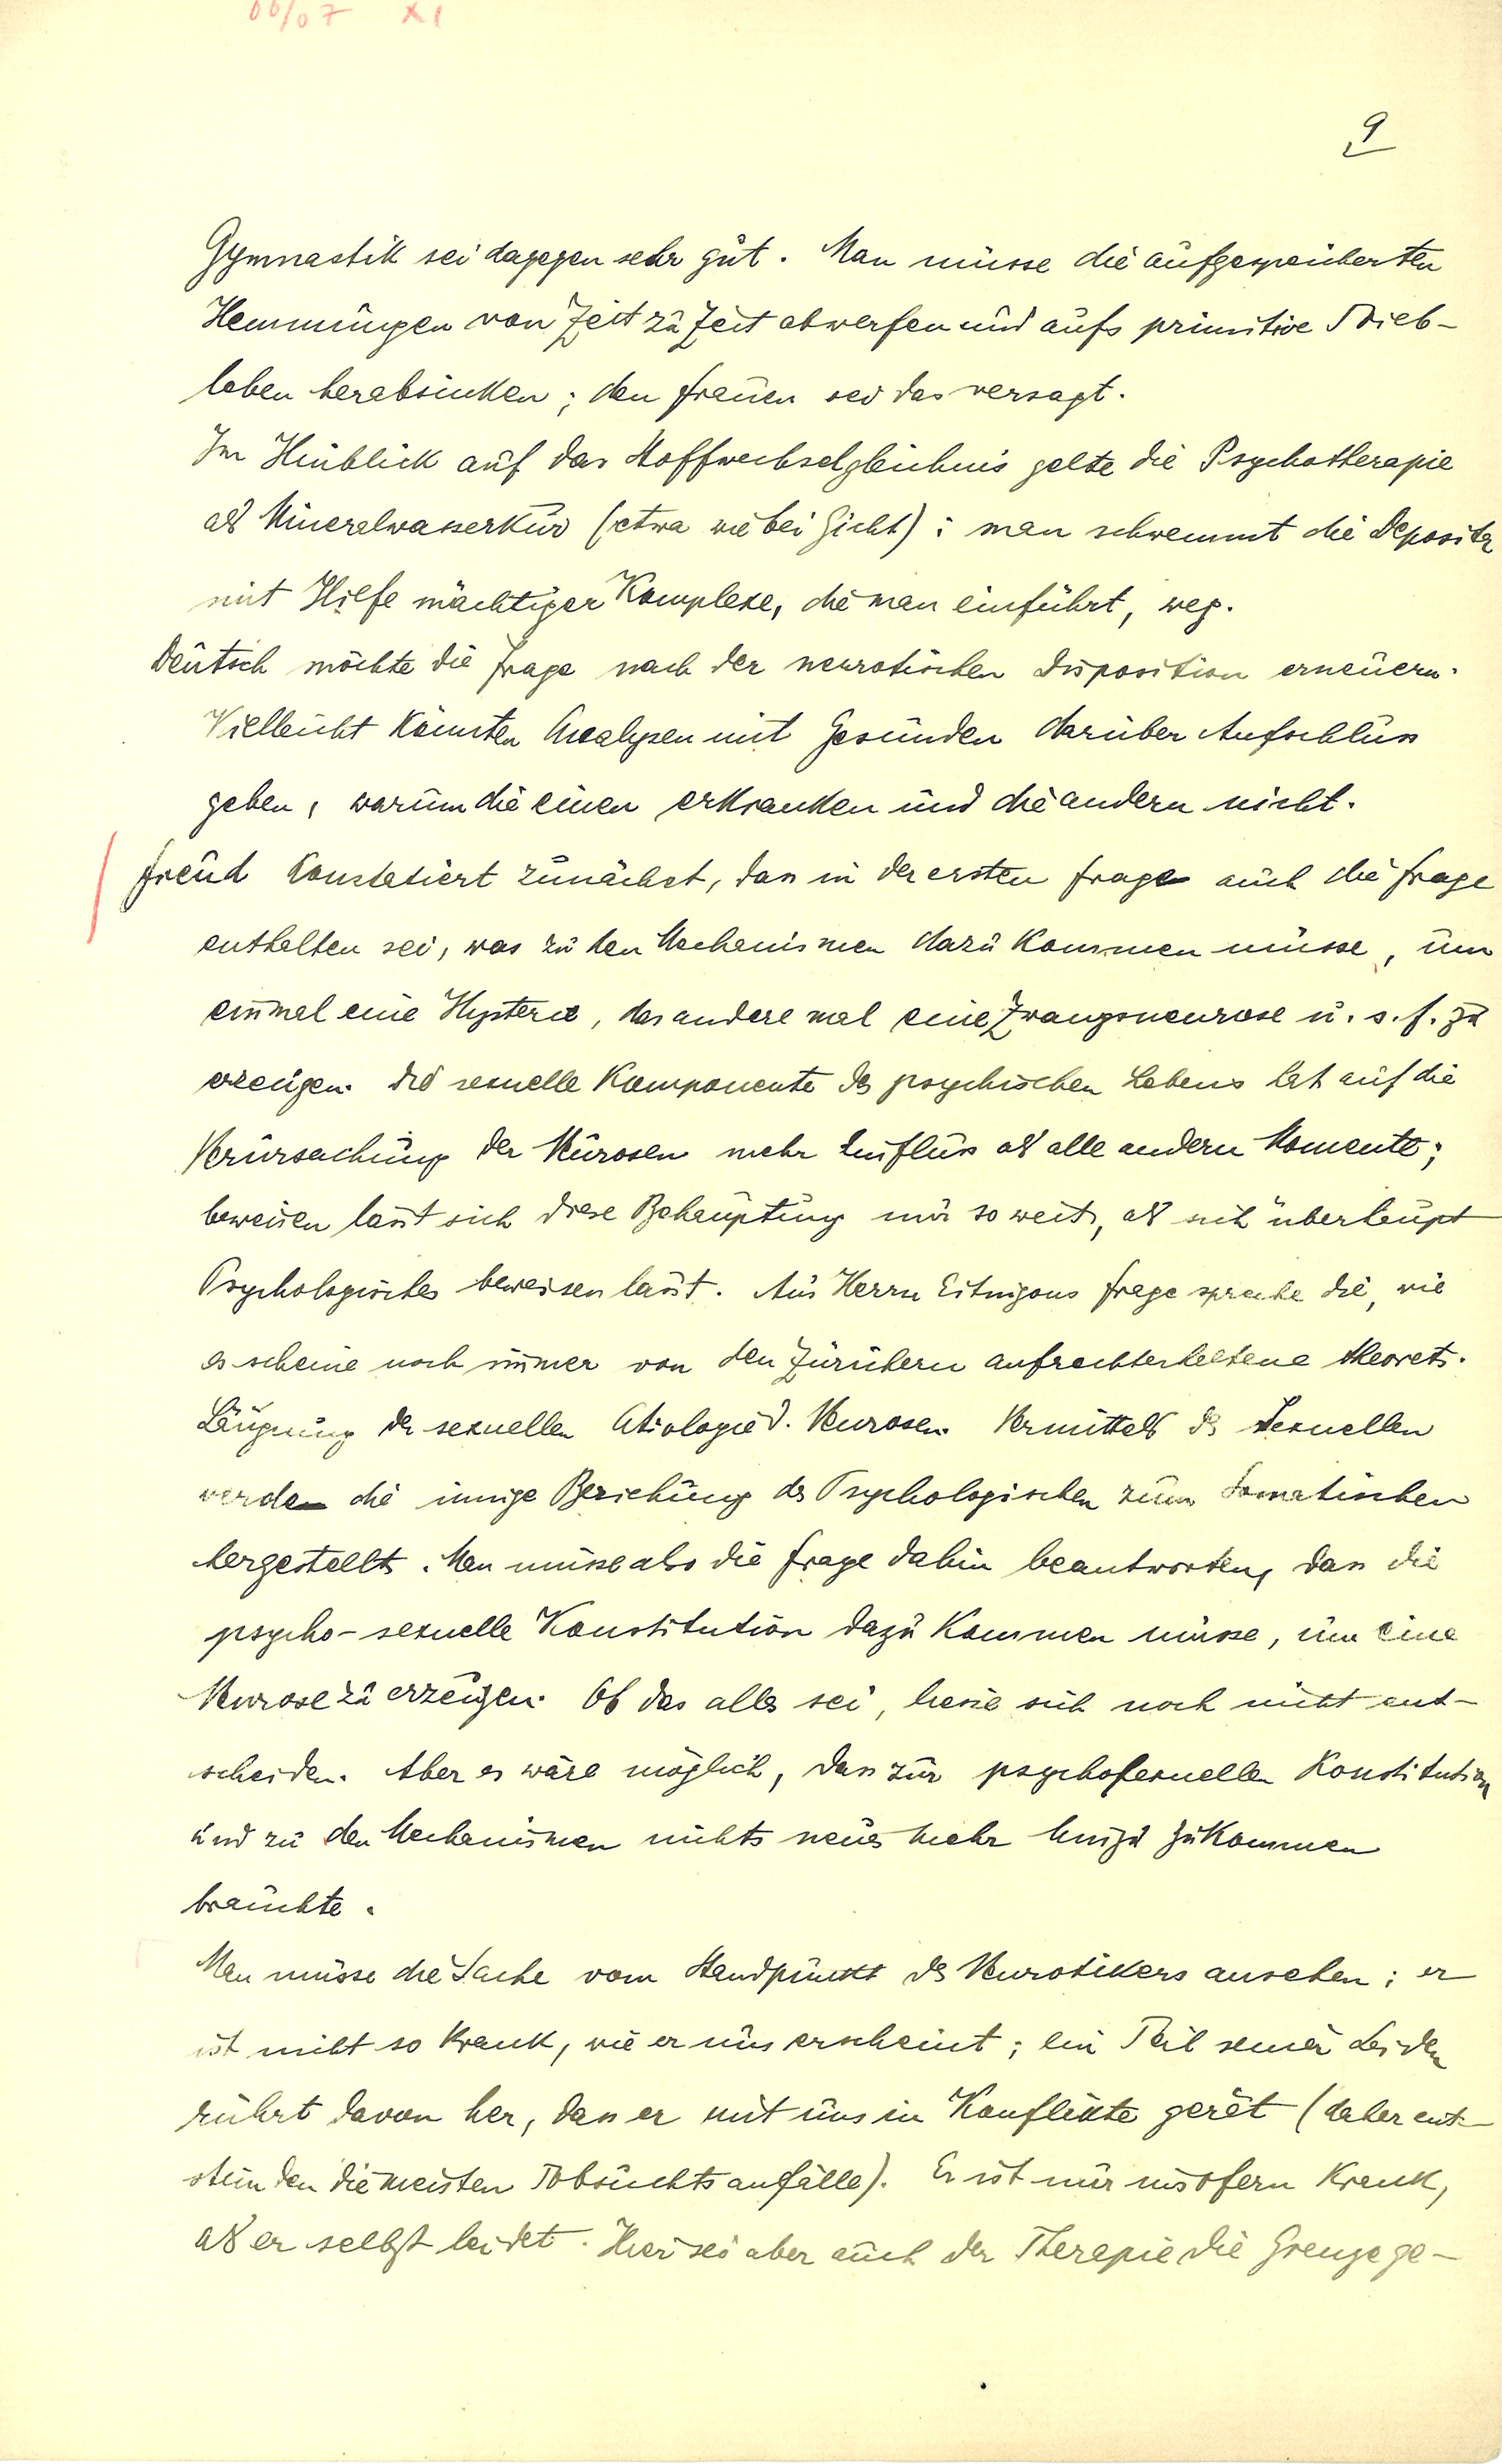 06/07 XI
9
Gymnastik sei dagegen sehr gut. Man müsse die aufgespeicherten
Hemmungen von Zeit zu Zeit abwerfen und aufs primitive Trieb-
leben herabsinken; den Frauen sei das versagt.
Im Hinblick auf das Stoffwechselgleichnis gelte die Psychotherapie
als Mineralwasserkur (etwa wie bei Gicht): man schwemmt die Depositen
mit Hilfe mächtiger Komplexe, die man einführt, weg.
Deutsch möchte die Frage nach der neurotischen Disposition erneuern.
Vielleicht könnten Analysen mit Gesunden darüber Aufschluss
geben, warum die einen erkranken und die andern nicht.
Freud konstatiert zunächst, dass in der ersten Frage auch die Frage
enthalten sei, was zu den Mechanismen dazu kommen müsse, um
einmal eine Hysterie, das andere mal eine Zwangsneurose u. s. f. zu
erzeugen. Die sexuelle Komponente des psychischen Lebens hat auf die
Verursachung der Neurosen mehr Einfluss als alle andern Momente;
beweisen lässt sich diese Behauptung nur so weit, als sich überhaupt
Psychologisches beweisen lässt. Aus Herrn Eitingons Frage spreche die, wie
es scheine noch immer von den Zürichern aufrechterhaltene theoret.
Läugnung der sexuellen Ätiologie d. Neurosen. Vermittels des Sexuellen
werde die innige Beziehung des Psychologischen zum Somatischen
hergestellt. Man müsse also die Frage dahin beantworten, dass die
psycho-sexuelle Konstitution dazu kommen müsse, um eine
Neurose zu erzeugen. Ob das alles sei, liesse sich noch nicht ent-
scheiden. Aber es wäre möglich, dass zur psychosexuellen Konstitution
und zu den Mechanismen nichts neues mehr hinzu zu kommen
brauchte.
Man müsse die Sache vom Standpunkt des Neurotikers ansehen; er
ist nicht so krank, wie er uns erscheint; ein Teil seiner Leiden
rührt davon her, dass er mit uns in Konflikte gerät (daher ent-
stünden die meisten Tobsuchtsanfälle). Er ist nur insofern krank,
als er selbst leidet. Hier sei aber auch der Therapie die Grenze ge-